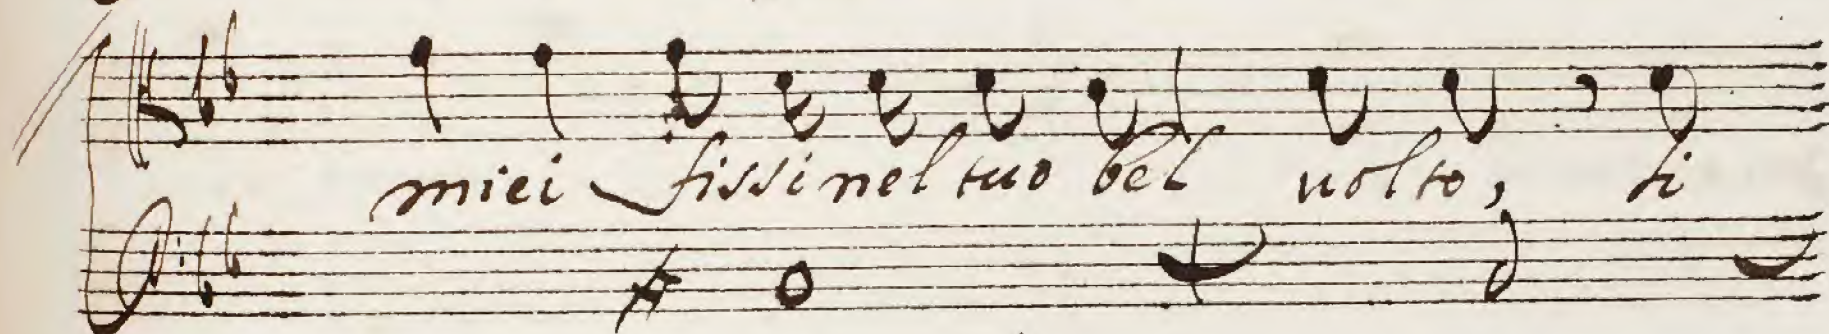 miei fissi nel tuo bel uolto, si